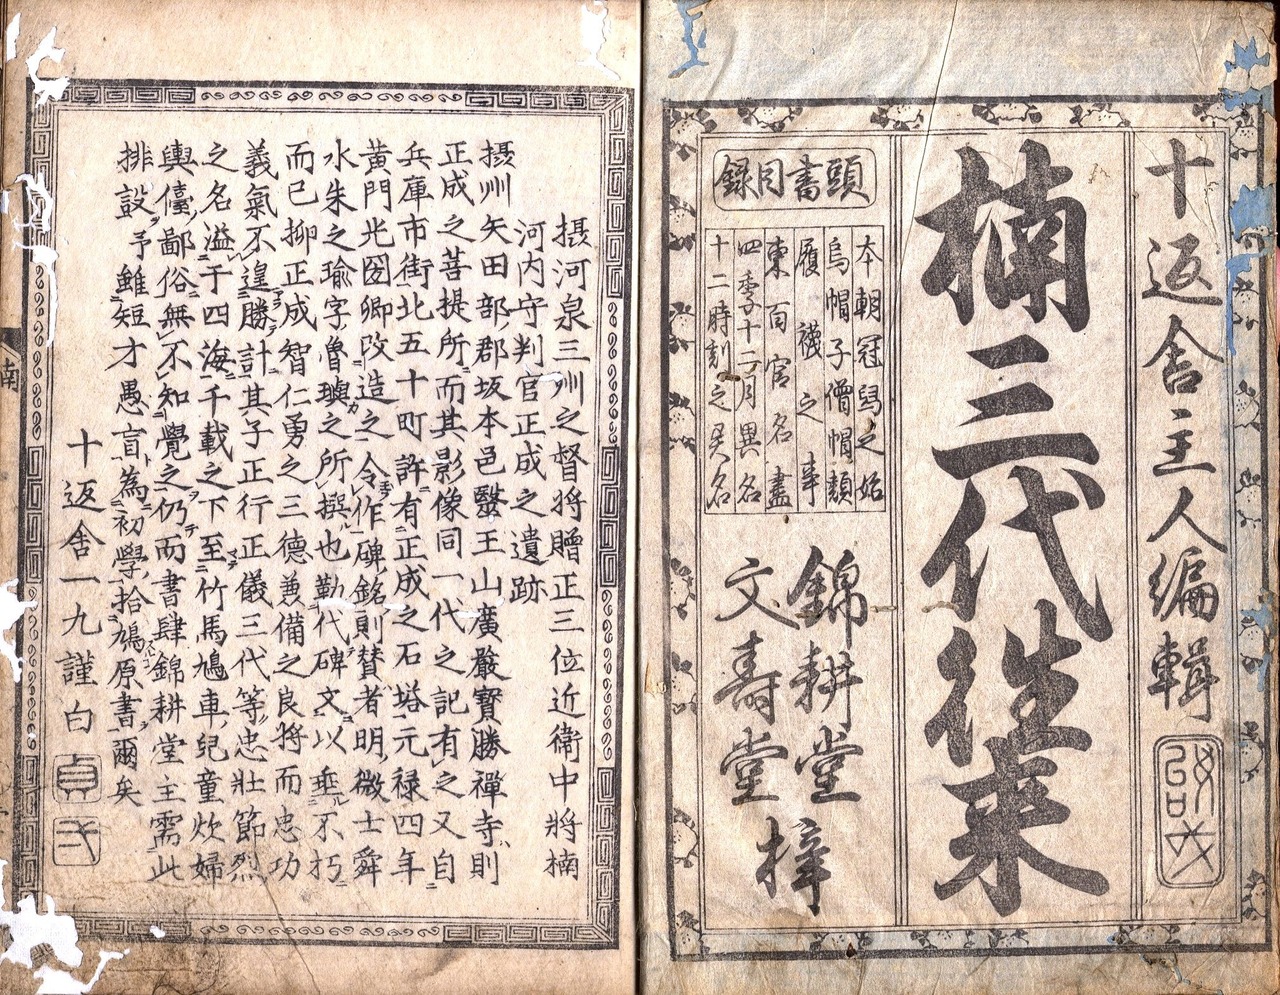 十返舎主人編輯
楠三代往来
頭書目録
本朝冠舄之始
烏帽子僧帽類
履襪之事
東百官名盡
四季十二月異名
十二時刻之異名
錦耕堂
文壽堂
梓
摂河泉三州之督将贈正三位近衛中將楠
河内守判官正成之遺跡
摂州矢田部郡坂本邑醫王山廣嚴寳勝禪寺則
正成之菩提所而其影像同一代之記有之又自
兵庫市街北五十町許有正成之石塔元禄四年
黄門光圀卿改造之令作碑銘則賛者明微士舜
水朱之瑜字魯璵之所撰也勒代碑文以垂不朽
而已抑正成智仁勇之三德兼備之良將而忠功
義氣不遑勝計其子正行正儀三代等忠壮節烈
之名溢于四海千載之下至竹馬鳩車兒童炊婦
輿儓鄙俗無不知覺之仍而書肆錦耕堂主需此
排設予雖短才愚盲為初學拾鳩原書爾矣
十返舎一九謹白
貞
一
南